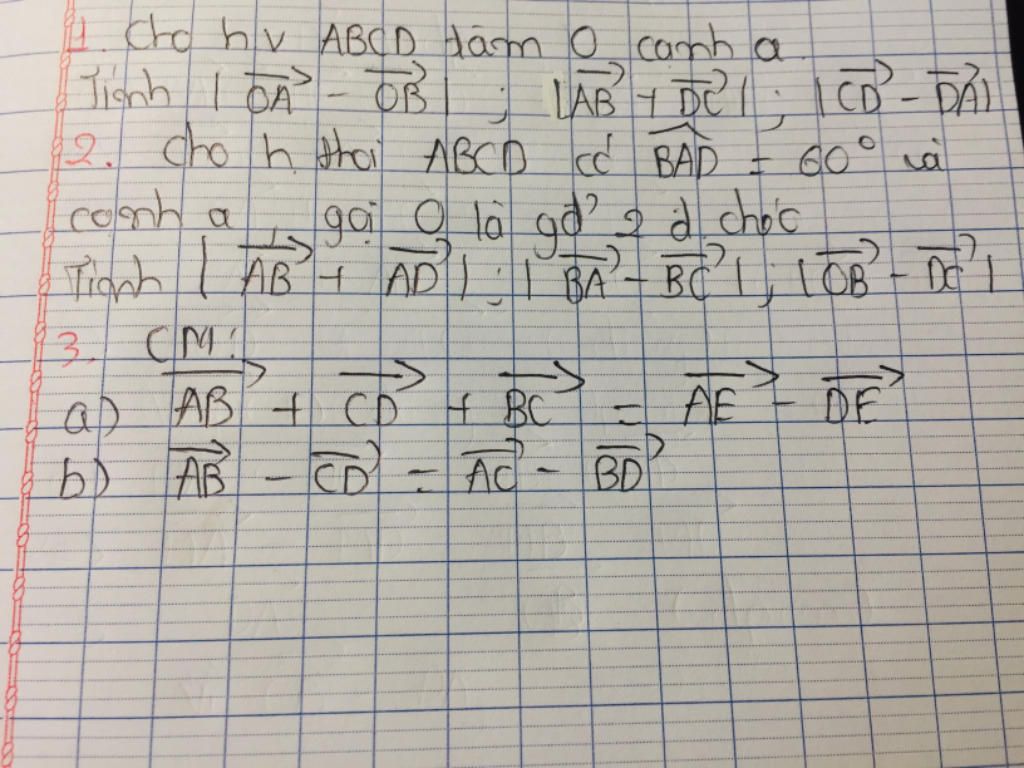 1. Cho h v ABCD tâm O cạnh a
Tính |\overrightarrow{OA} - \overrightarrow{OB}| ; |\overrightarrow{AB} + \overrightarrow{DC}| ; |\overrightarrow{CD} - \overrightarrow{DA}|
2. Cho h thoi ABCD có \widehat{BAD} = 60° và
cạnh a, gọi O là gđ 2 đ chéo
Tính |\overrightarrow{AB} + \overrightarrow{AD}| ; |\overrightarrow{BA} - \overrightarrow{BC}| ; |\overrightarrow{OB} - \overrightarrow{DC}|
3. CM:
a) \overrightarrow{AB} + \overrightarrow{CD} + \overrightarrow{BC} = \overrightarrow{AE} - \overrightarrow{DE}
b) \overrightarrow{AB} - \overrightarrow{CD} = \overrightarrow{AC} - \overrightarrow{BD}